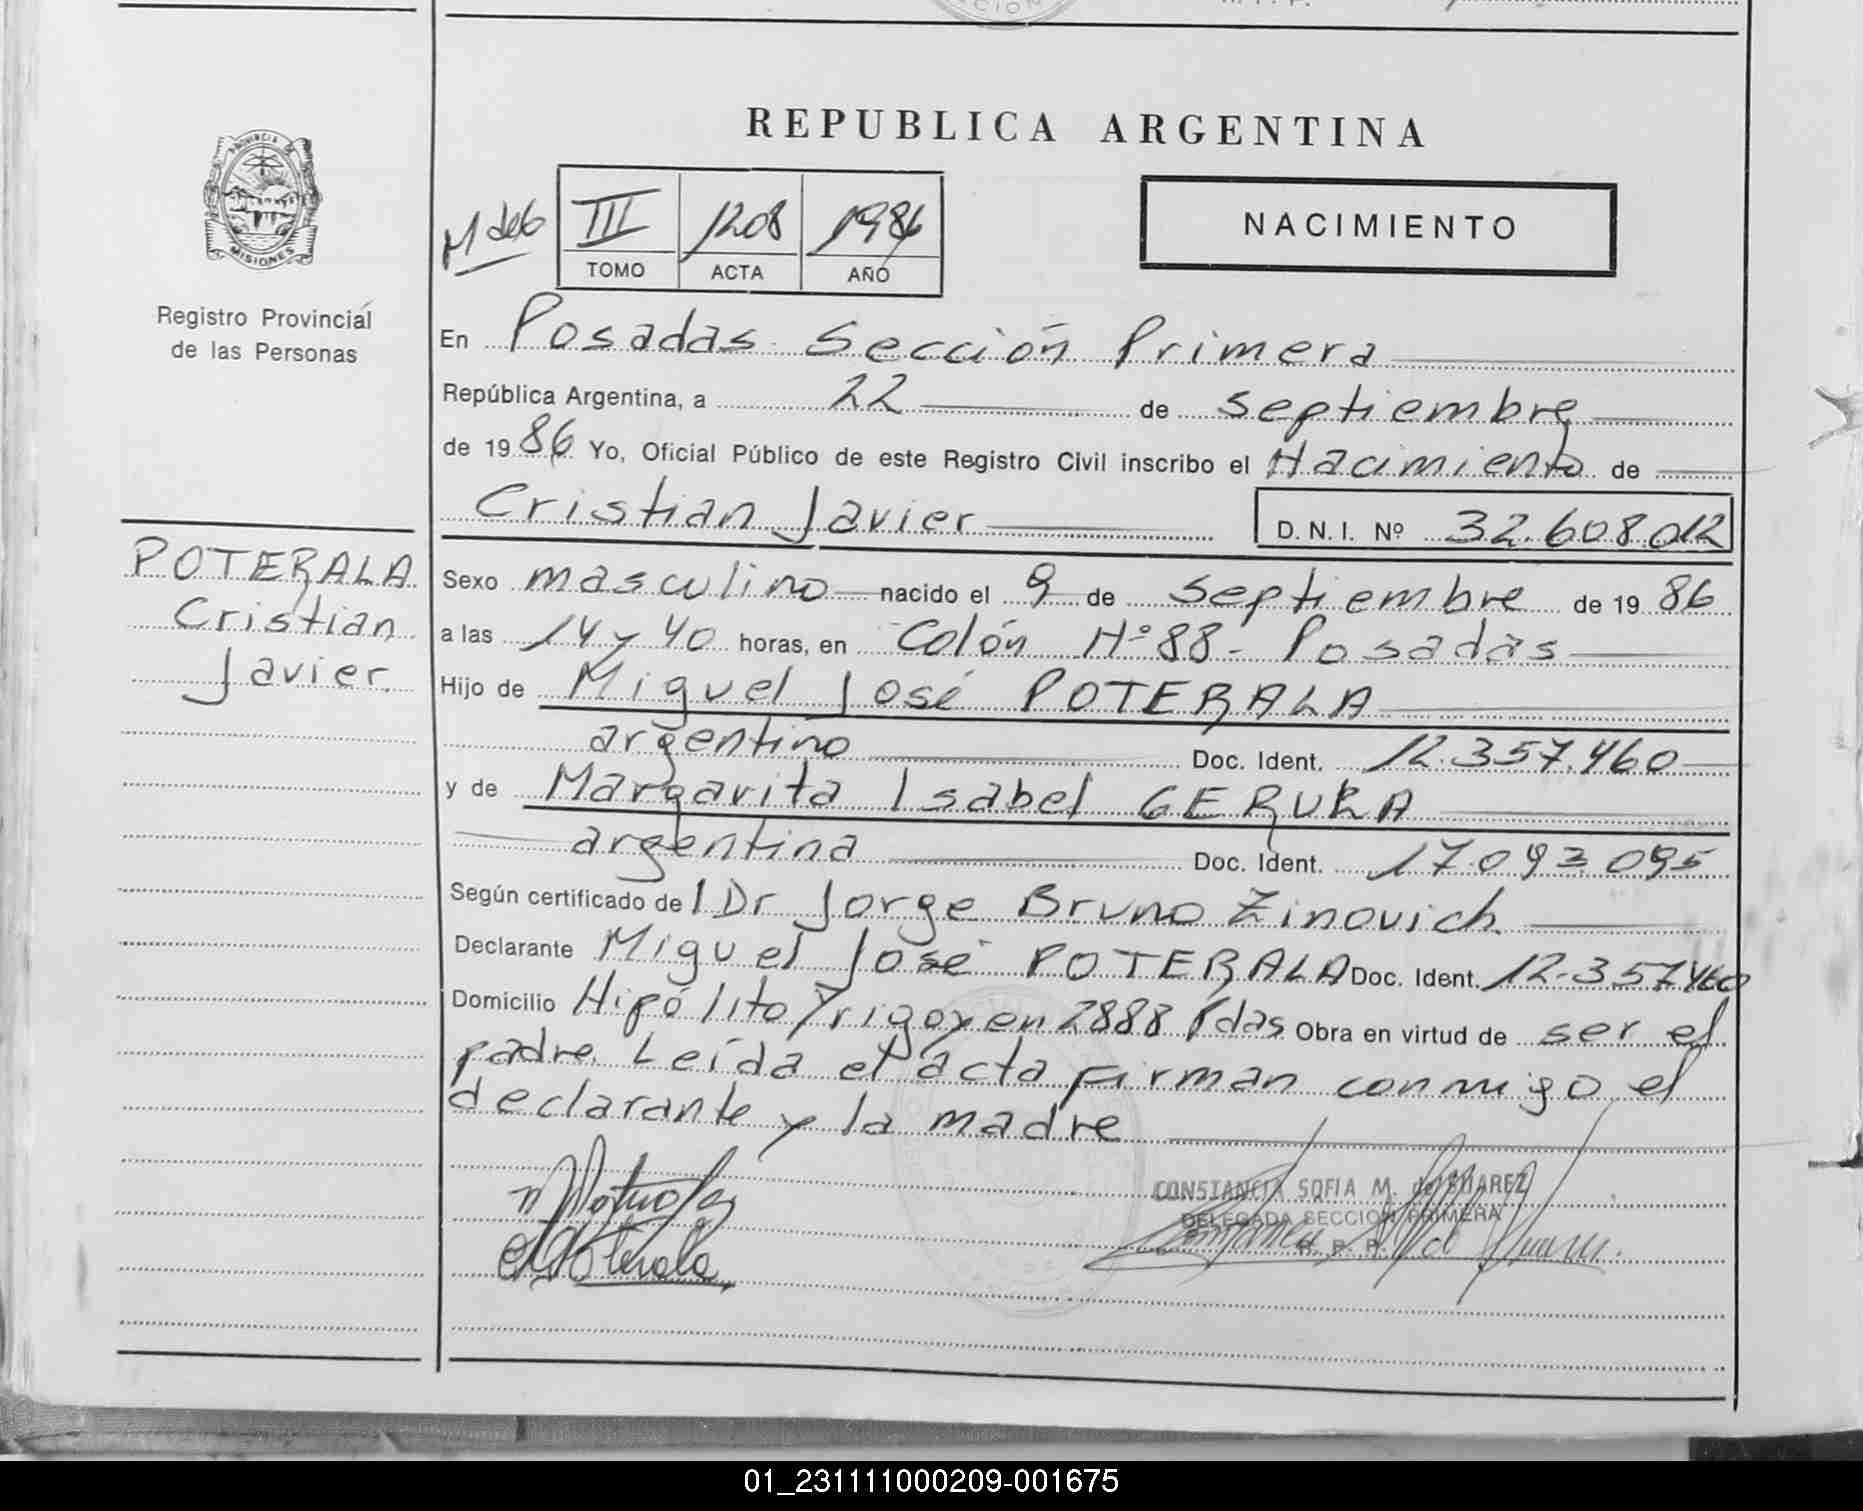 REPUBLICA ARGENTINA
PROVINCIA DE
MISIONES
Registro Provincial
de las Personas
III 1208 1986
TOMO ACTA AÑO
NACIMIENTO
En Posadas Sección Primera
República Argentina, a 22 de septiembre
de 1986 Yo, Oficial Público de este Registro Civil inscribo el Nacimiento de
Cristian Javier D.N.I. Nº 32.608.012
POTERALA
Cristian
Javier
Sexo masculino nacido el 9 de septiembre de 1986
a las 14 y 40 horas, en Colón Nº 88 - Posadas
Hijo de Miguel José POTERALA
argentino Doc. Ident. 12.357.460
y de Margarita Isabel GERULA
argentina Doc. Ident. 17.093.095
Según certificado del Dr Jorge Bruno Zinovich
Declarante Miguel José POTERALA Doc. Ident. 12.357.460
Domicilio Hipólito Yrigoyen 2888 Pdas Obra en virtud de ser el
padre. Leída el acta firman conmigo el
declarante y la madre
CONSTANCIA SOFIA M. de SUAREZ
DELEGADA SECCION PRIMERA
R. P. P.
01_231111000209-001675